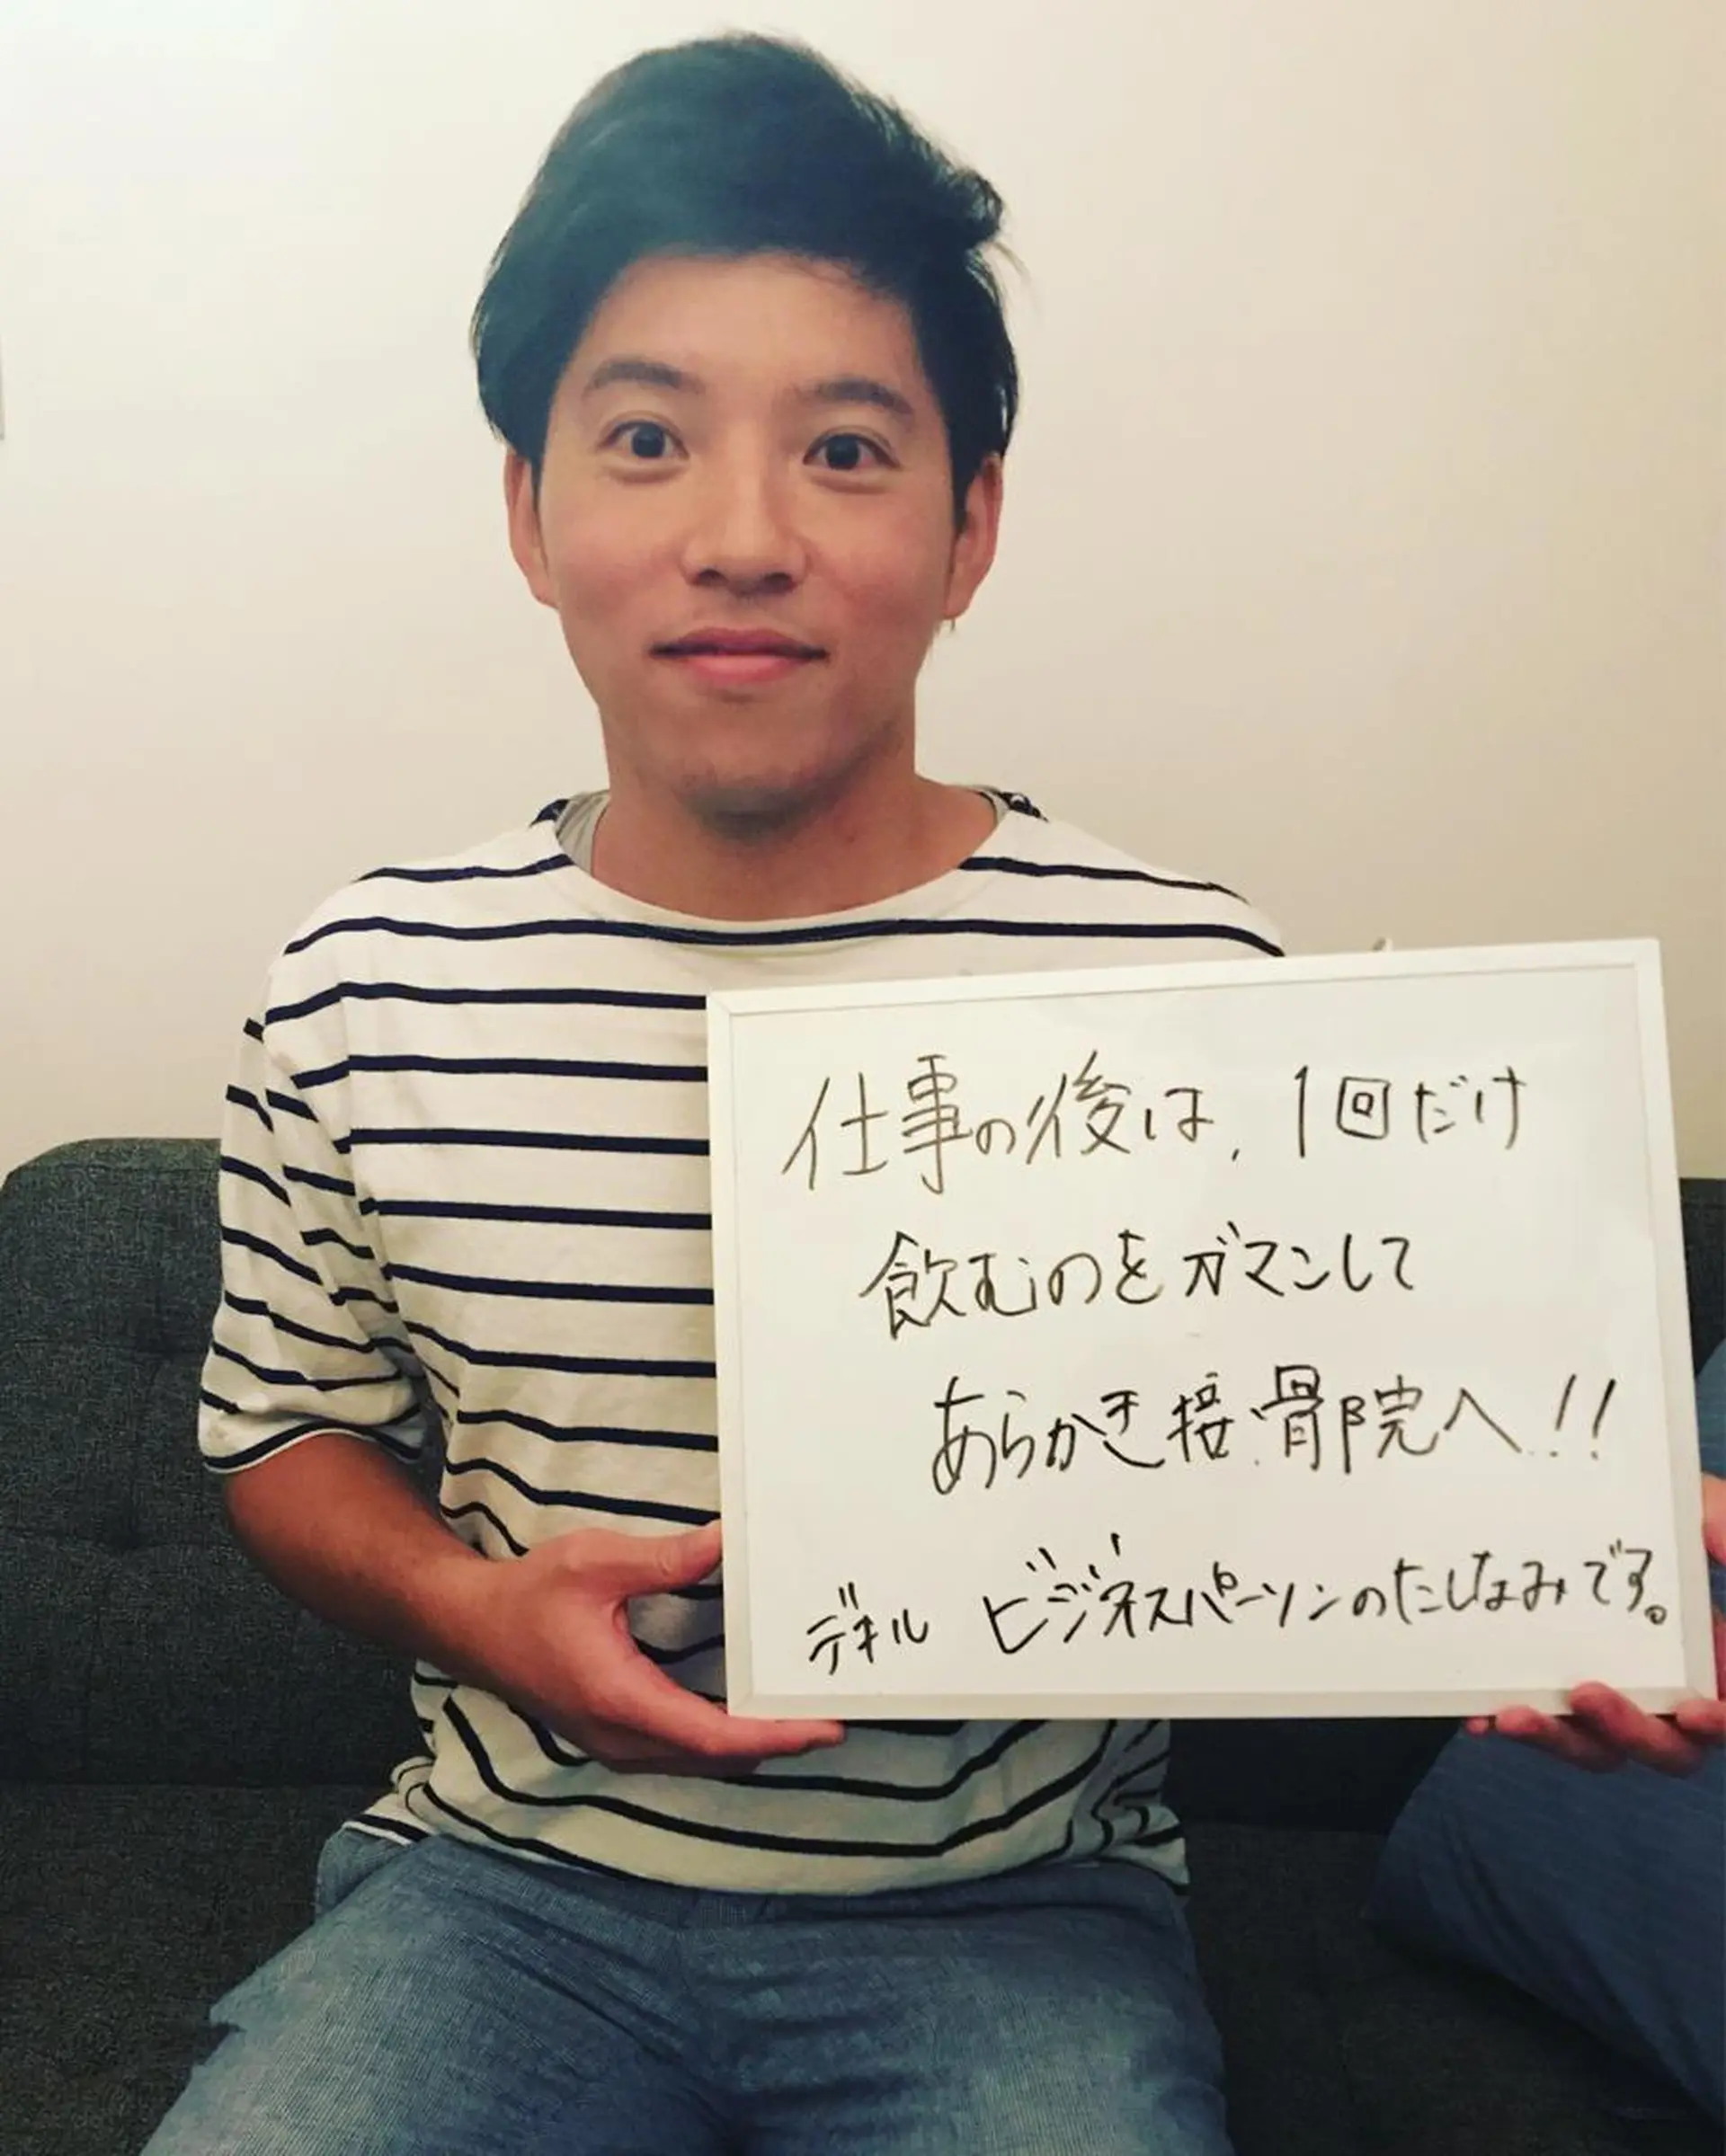 仕事の後は、1回だけ
飲むのをガマンして
あらかき接骨院へ!!
デキル ビジネスパーソンのたしなみです。